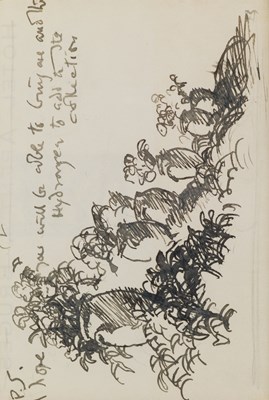 P.S.
I hope you will be able to bring me another
Hydranger to add to the
collection